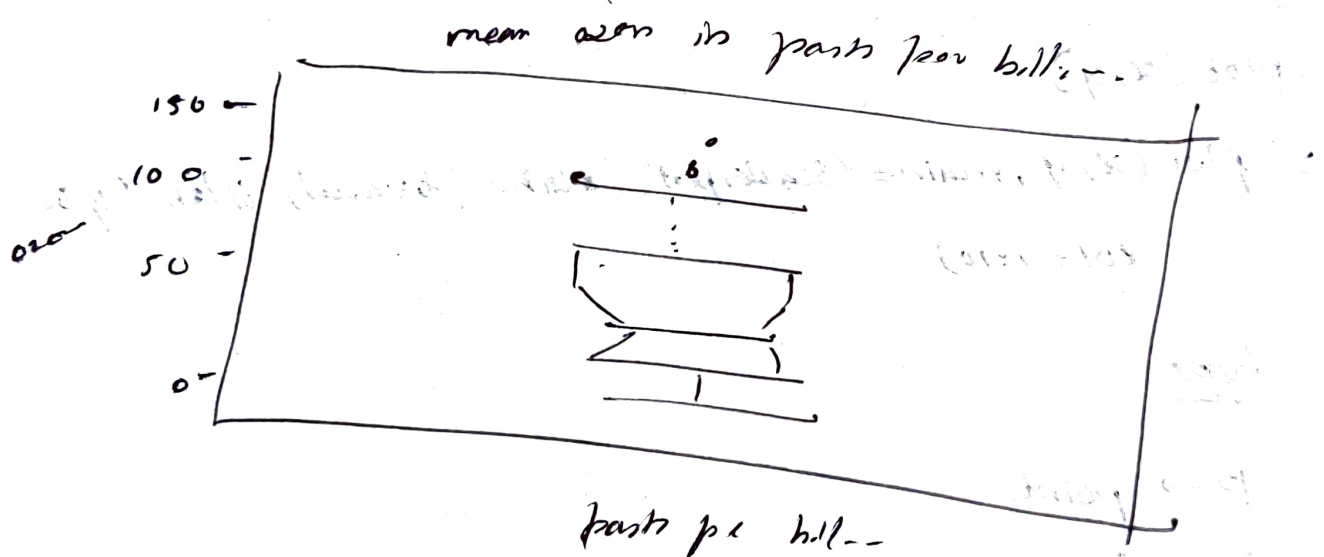 mean ozon in parts per bill...
150
100
ozon
50
0
parts pe bill--